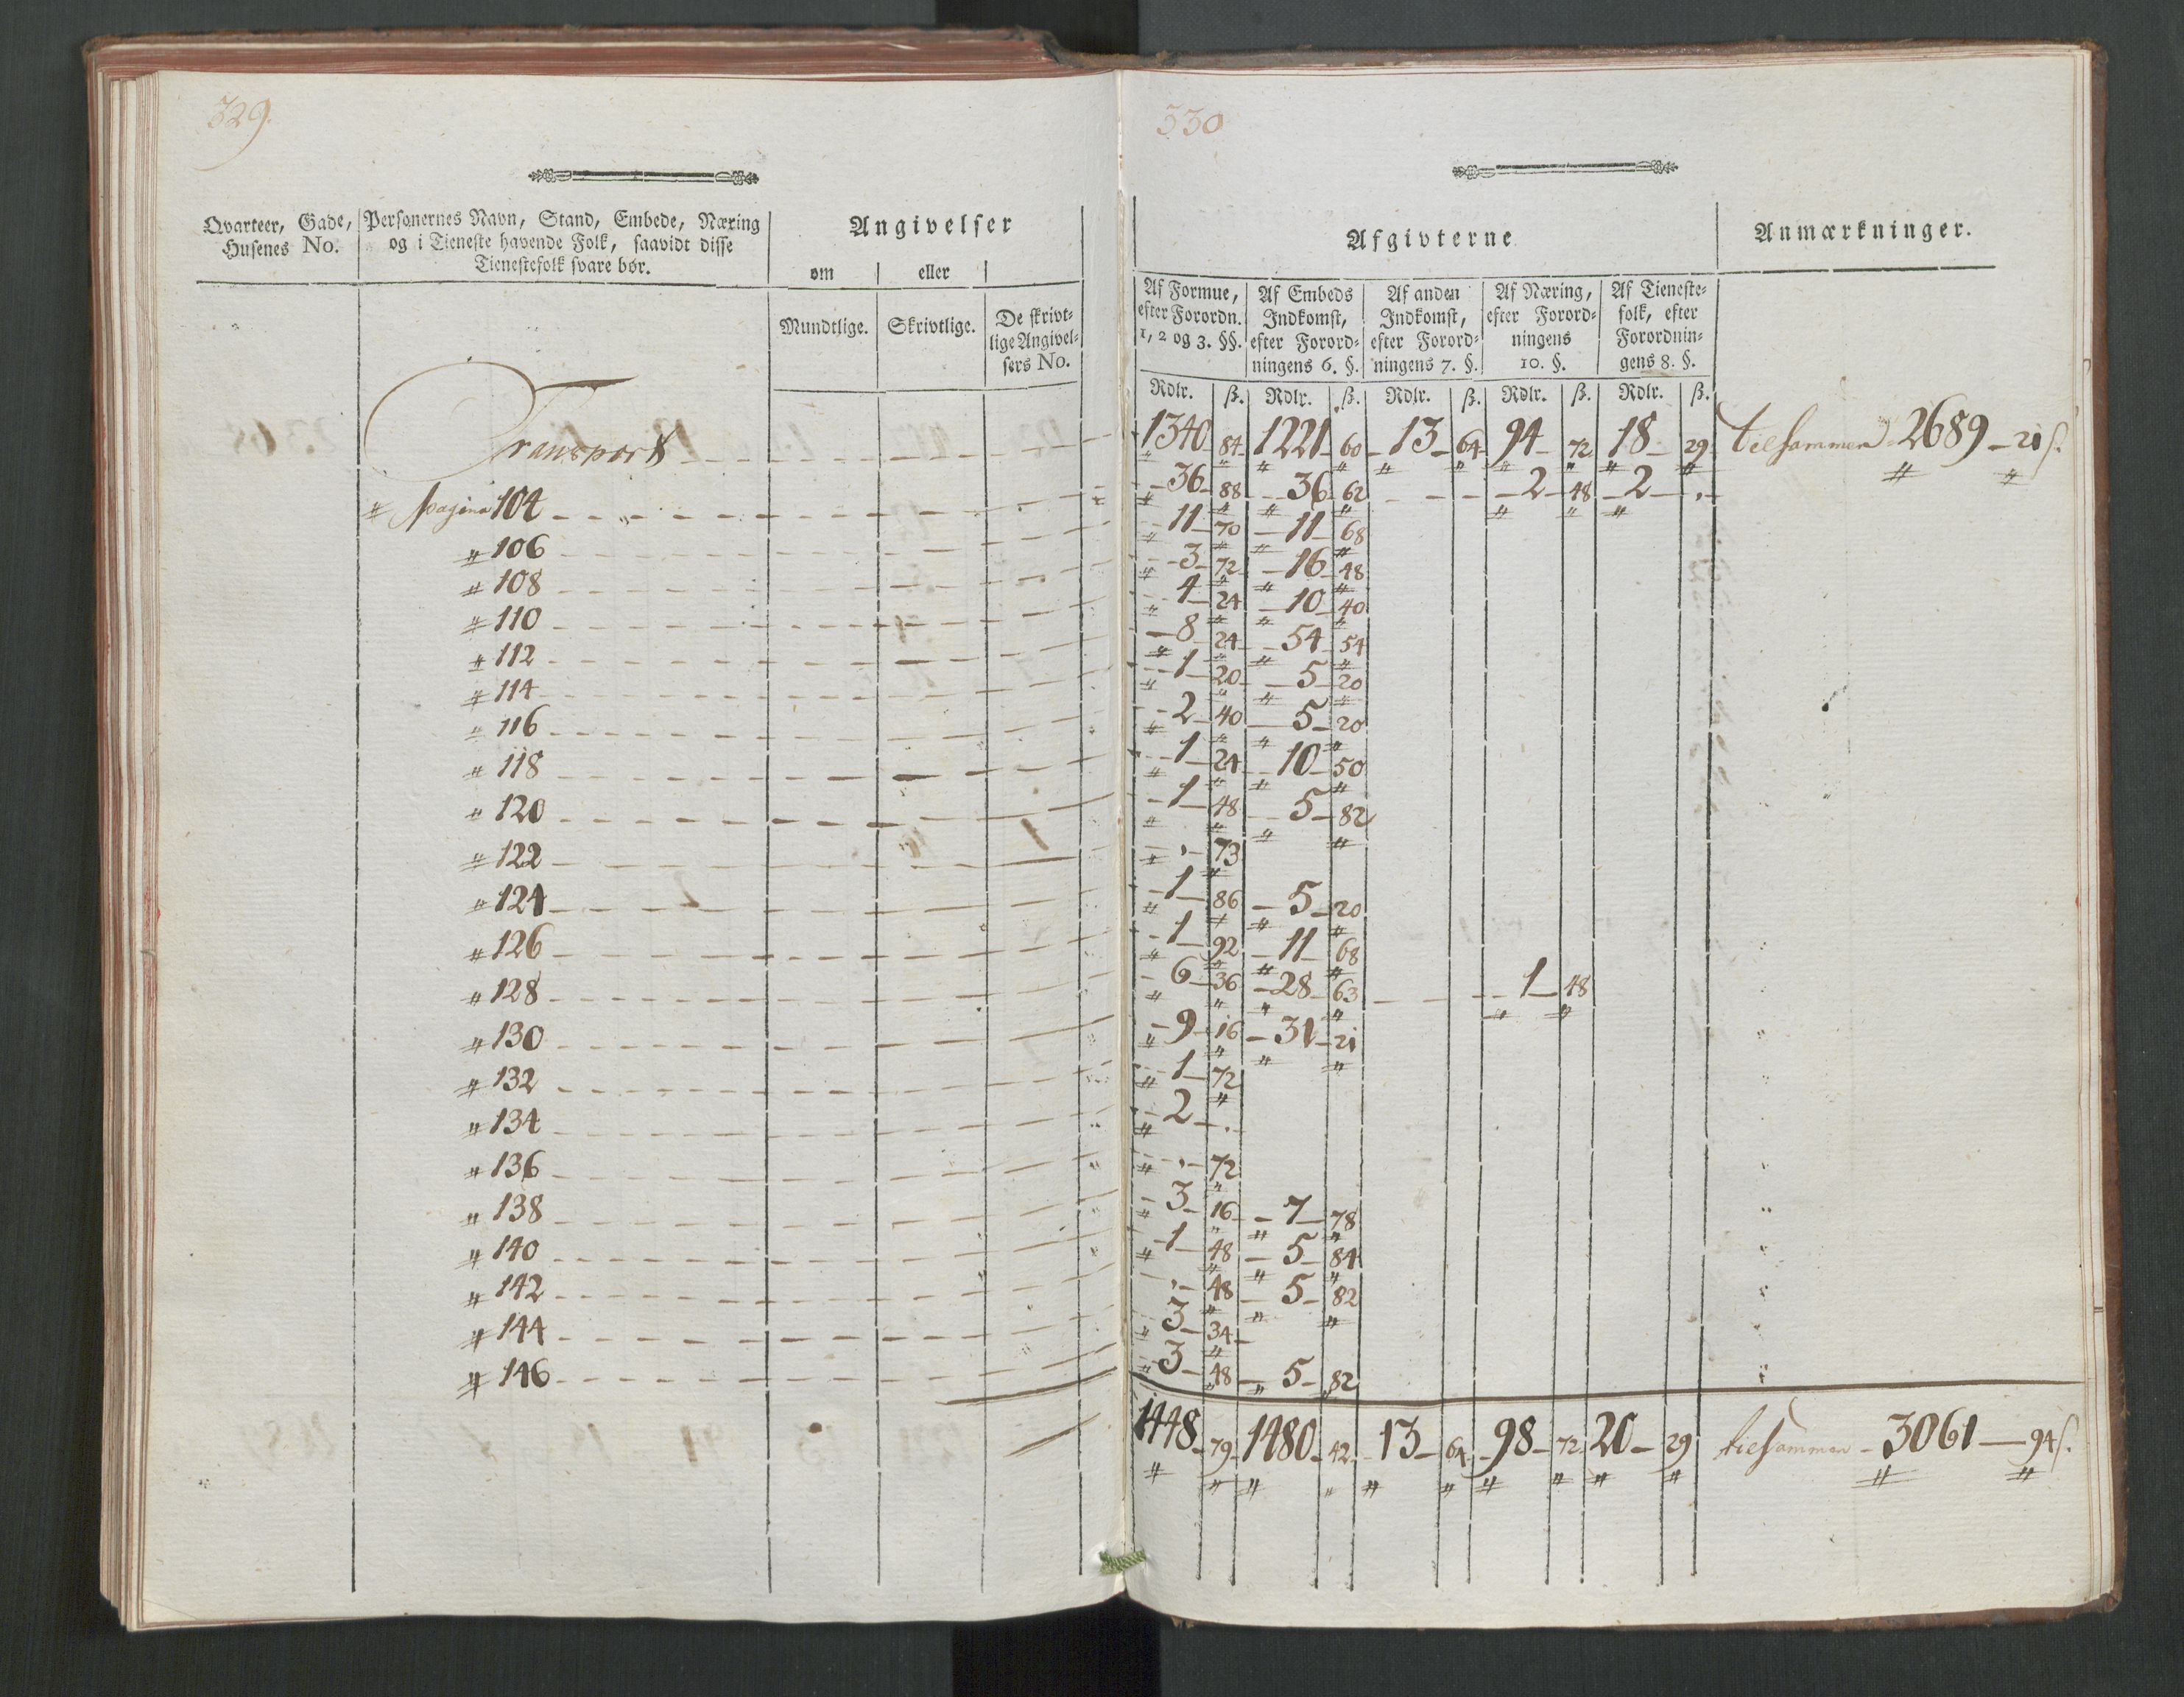 329.
Qvarteer, Gade, Husenes No.
Personernes Navn, Stand, Embede, Næring og i Tieneste havende Folk, saavidt disse Tienestefolk svare bør.
Angivelser
om eller
Mundtlige. Skrivtlige. De skrivtlige Angivelsers No.
330
Afgivterne
Anmærkninger.
Af Formue, efter Forordn. 1, 2 og 3. §§.
Af Embeds Indkomst, efter Forordningens 6. §.
Af anden Indkomst, efter Forordningens 7. §.
Af Næring, efter Forordningens 10. §.
Af Tienestefolk, efter Forordningens 8. §.
Rdlr. ß. Rdlr. ß. Rdlr. ß. Rdlr. ß. Rdlr. ß.
Transport 1340 84 1221 60 13 64 94 72 18 29 tilsammen 2689 - 21 ß.
" pagina 104 36 88 36 62 2 48 2 -
" 106 11 70 11 68
" 108 3 72 16 48
" 110 4 24 10 40
" 112 8 24 54 54
" 114 1 20 5 20
" 116 2 40 5 20
" 118 1 24 10 50
" 120 1 48 5 82
" 122 - 73
" 124 1 86 5 20
" 126 1 92 11 68
" 128 6 36 28 63 1 48
" 130 9 16 31 21
" 132 1 72
" 134 2 -
" 136 - 72
" 138 3 16 7 78
" 140 1 48 5 84
" 142 - 48 5 82
" 144 3 34
" 146 3 48 5 82
1448 79 1480 42 13 64 98 72 20 29 tilsammen - 3061 - 94 ß.